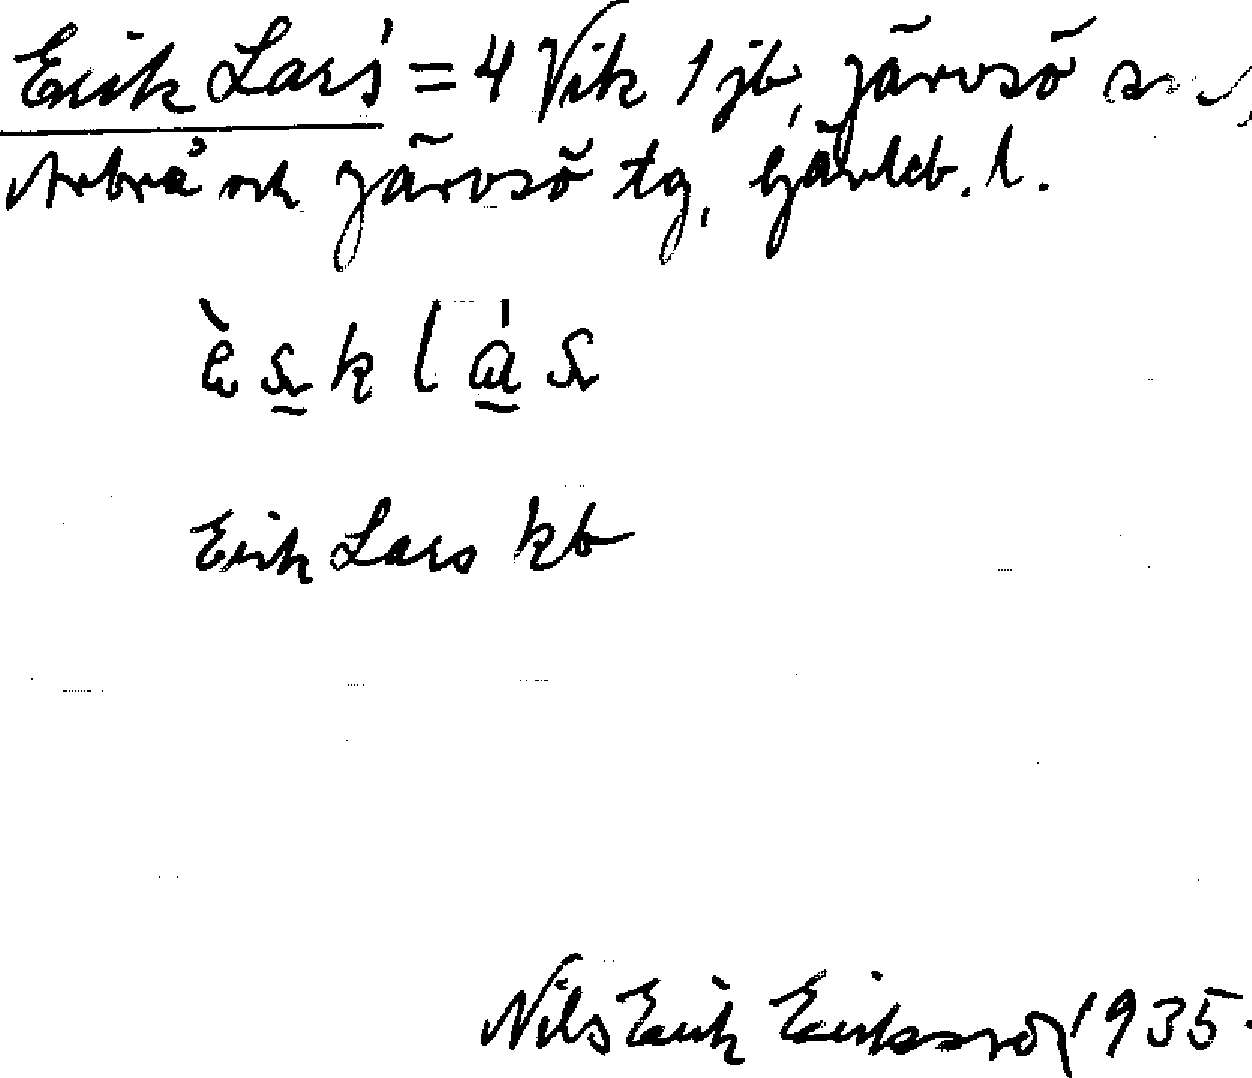 Erik Lars' = 4 Vik 1 jb, Järvsö sn,
Arbrå och Järvsö tg, Gävleb. l.
Erik Lars kb
Nils Erik Eriksson 1935.